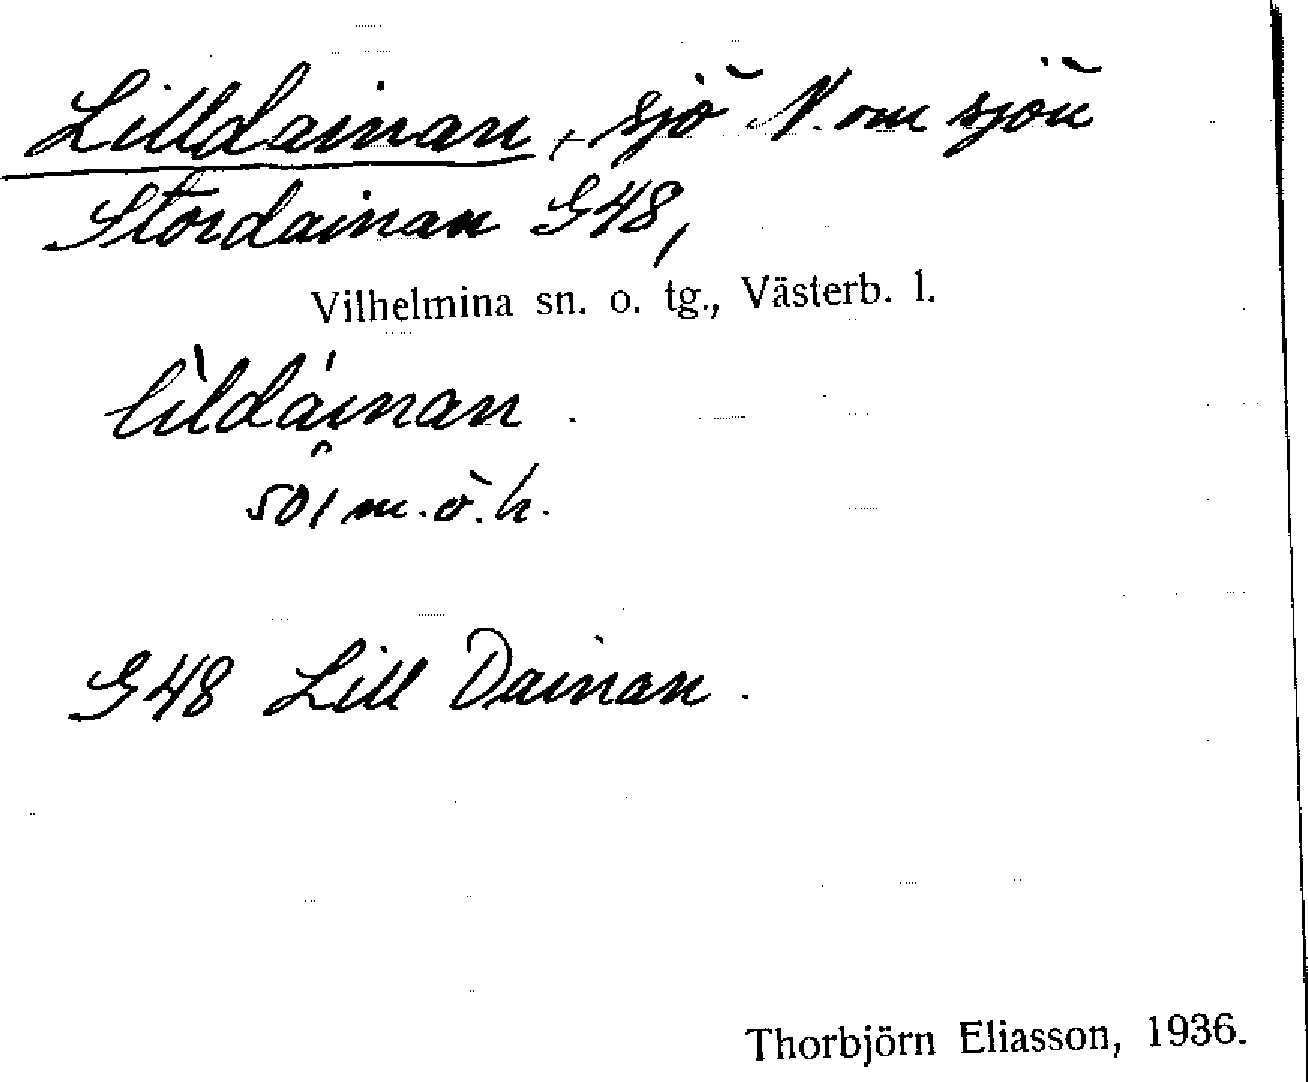 Lilldainan, sjö N. om sjön
Stordainan G48,
Vilhelmina sn. o. tg., Västerb. l.
lìldáinan.
501 m.ö.h.
G48 Lill Dainan.
Thorbjörn Eliasson, 1936.